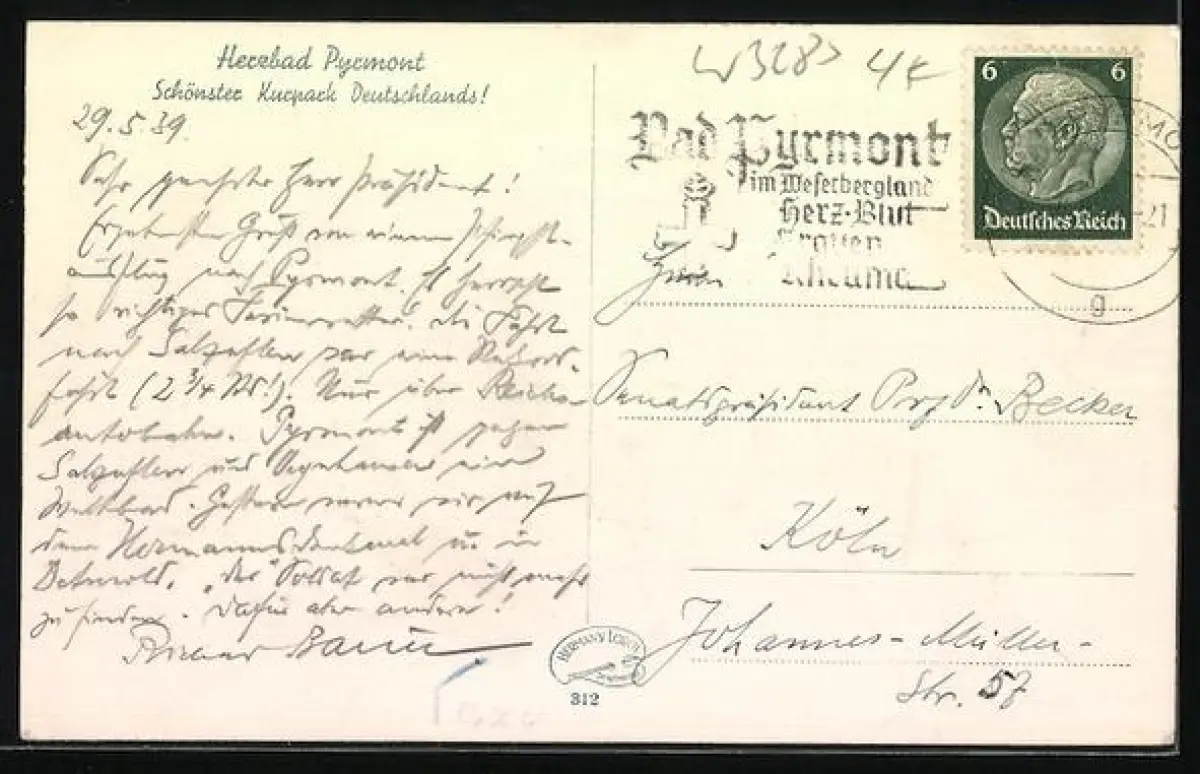 Herzbad Pyrmont
Schönster Kurpark Deutschlands!
29.5.39.
Sehr geehrter Herr Präsident!
Ergebensten Gruß von einem Pfingst-
ausflug nach Pyrmont. Es herrscht
so richtiges Ferienwetter. Die Fahrt
nach Salzuflen war eine Rekord-
fahrt (2 3/4 Std!). Nur über Reichs-
autobahn. Pyrmont ist gegen
Salzuflen und Oeynhausen ein
Weltbad. Gestern waren wir auf
dem Hermannsdenkmal u. in
Detmold. "Der" Soldat war nicht mehr
zu finden. Dafür aber andere!
W328> 4
Bad Pyrmont
im Weserbergland
Herz-Blut
Frauen
Rheuma
6 6
Deutsches Reich
MO
-21
g
Herrn
Senatspräsident Prof Dr. Becker
Köln
Johannes-Müller-
Str. 57
312